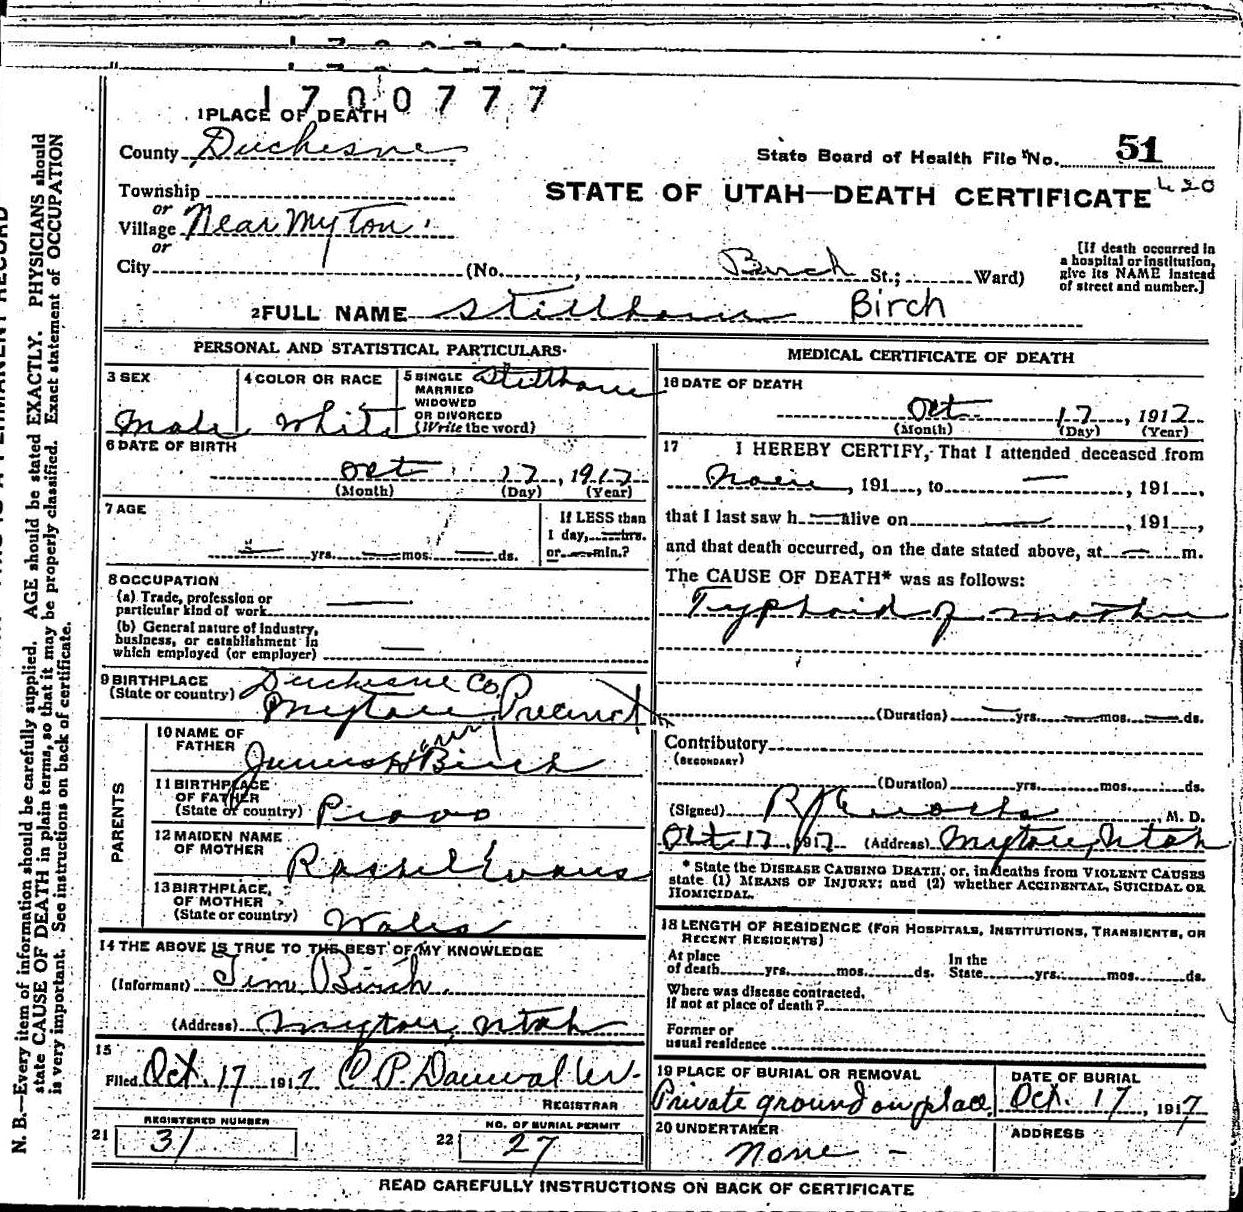 1700777
1 PLACE OF DEATH
County Duchesne
State Board of Health File No. 51
420
Township
or
Village Near Myton
or
City (No. , Birch St.; Ward)
STATE OF UTAH—DEATH CERTIFICATE
[If death occurred in
a hospital or institution,
give its NAME instead
of street and number.]
2 FULL NAME Stillborn Birch
PERSONAL AND STATISTICAL PARTICULARS
3 SEX
Male
4 COLOR OR RACE
White
5 SINGLE
MARRIED
WIDOWED
OR DIVORCED
(Write the word)
Stillborn
6 DATE OF BIRTH
Oct 17, 1917
(Month) (Day) (Year)
7 AGE
— yrs. — mos. — ds.
If LESS than
1 day, — hrs.
or — min.?
8 OCCUPATION
(a) Trade, profession or
particular kind of work —
(b) General nature of industry,
business, or establishment in
which employed (or employer) —
9 BIRTHPLACE
(State or country)
Duchesne Co.
Myton Precinct
PARENTS
10 NAME OF
FATHER
Birch
11 BIRTHPLACE
OF FATHER
(State or country) Provo
12 MAIDEN NAME
OF MOTHER
Evans
13 BIRTHPLACE
OF MOTHER
(State or country) Wales
14 THE ABOVE IS TRUE TO THE BEST OF MY KNOWLEDGE
(Informant) Jim Birch
(Address) Myton, Utah
15
Filed Oct. 17 1917
REGISTRAR
21 REGISTERED NUMBER
31
22 NO. OF BURIAL PERMIT
27
MEDICAL CERTIFICATE OF DEATH
16 DATE OF DEATH
Oct 17, 1917
(Month) (Day) (Year)
17 I HEREBY CERTIFY, That I attended deceased from
None, 191 , to — , 191 ,
that I last saw h — alive on — , 191 ,
and that death occurred, on the date stated above, at — m.
The CAUSE OF DEATH* was as follows:
Typhoid of mother
(Duration) — yrs. — mos. — ds.
Contributory
(SECONDARY)
(Duration) yrs. mos. ds.
(Signed) , M. D.
Oct 17, 1917 (Address) Myton, Utah
* State the DISEASE CAUSING DEATH, or, in deaths from VIOLENT CAUSES
state (1) MEANS OF INJURY; and (2) whether ACCIDENTAL, SUICIDAL OR
HOMICIDAL.
18 LENGTH OF RESIDENCE (FOR HOSPITALS, INSTITUTIONS, TRANSIENTS, OR
RECENT RESIDENTS)
At place
of death yrs. mos. ds.
In the
State yrs. mos. ds.
Where was disease contracted,
if not at place of death?
Former or
usual residence
19 PLACE OF BURIAL OR REMOVAL
Private ground on place
DATE OF BURIAL
Oct. 17, 1917
20 UNDERTAKER
None —
ADDRESS
READ CAREFULLY INSTRUCTIONS ON BACK OF CERTIFICATE
N. B.—Every item of information should be carefully supplied. AGE should be stated EXACTLY. PHYSICIANS should
state CAUSE OF DEATH in plain terms, so that it may be properly classified. Exact statement of OCCUPATION
is very important. See instructions on back of certificate.